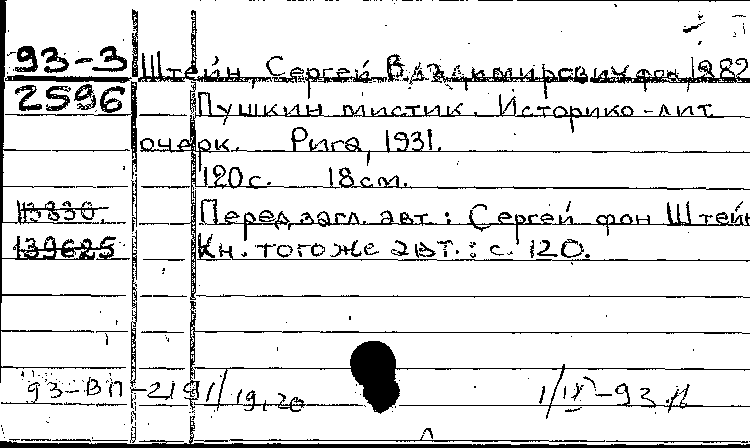 93-3 Штейн, Сергей Владимирович фон, 1882
2596 Пушкин мистик. Историко-лит
очерк. Рига, 1931.
120с. 18см.
113830. Перед загл. авт.: Сергей фон Штейн
139625 Кн. того же авт.: с. 120.
93-ВП-2191/19,20 1/IX-93